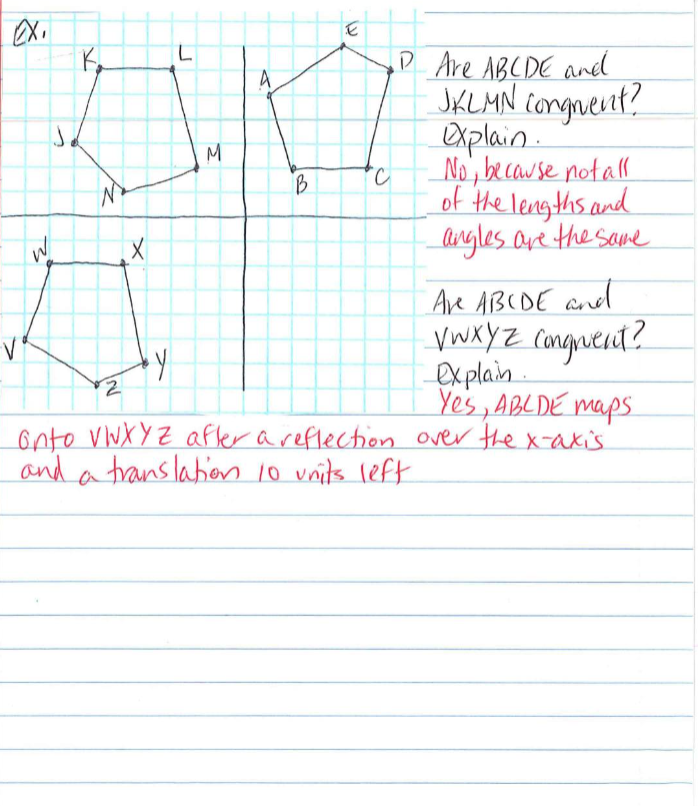 Ex.
K
L
J
M
N
E
A
D
B
C
W
X
V
Y
Z
Are ABCDE and
JKLMN congruent?
Explain.
No, because not all
of the lengths and
angles are the same
Are ABCDE and
VWXYZ congruent?
Explain.
Yes, ABCDE maps
onto VWXYZ after a reflection over the x-axis
and a translation 10 units left